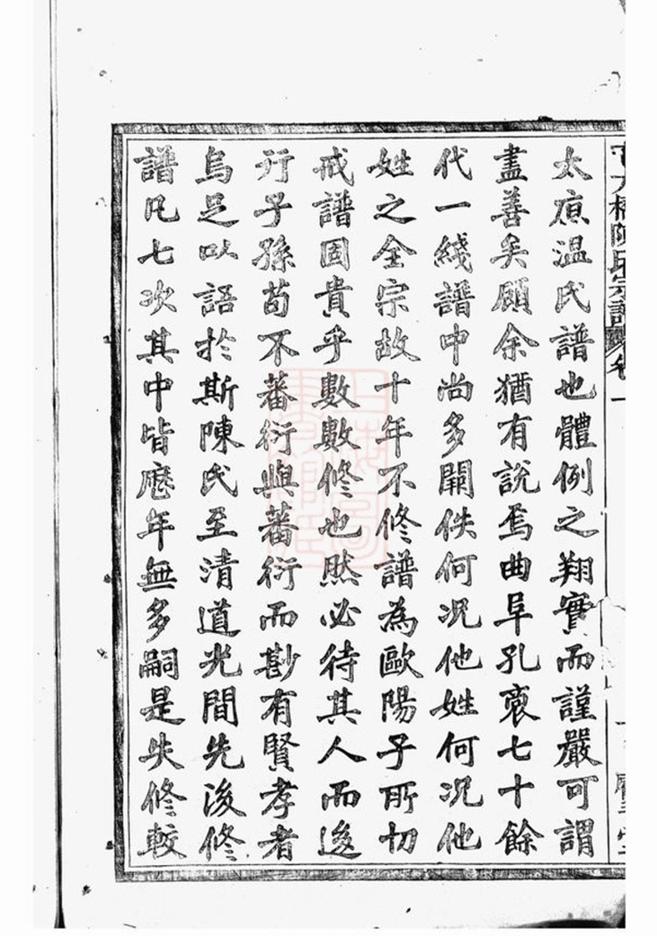 太原温氏譜也體例之翔實而謹嚴可謂
盡善矣顧余猶有説焉曲阜孔裔七十餘
代一綫譜中尚多闕佚何况他姓何况他
姓之全宗故十年不修譜為歐陽子所切
戒譜固貴乎數數修也然必待其人而後
行子孫苟不蕃衍與蕃衍而尠有賢孝者
烏足以語於斯陳氏至清道光間先後修
譜凡七次其中皆應年無多嗣是失修較
陳氏宗譜 卷一